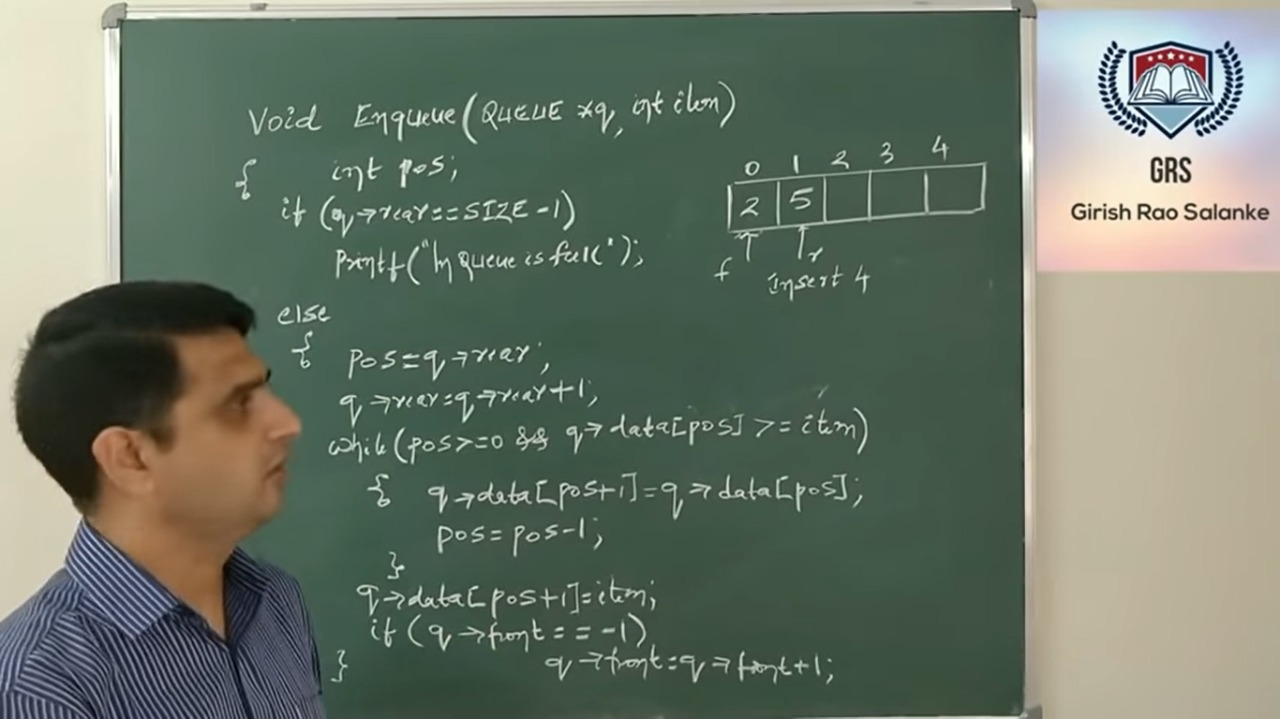 Void Enqueue(QUEUE *q, int item)
{ int pos;
if (q→rear==SIZE-1)
Printf("\n Queue is full");
else
{ pos=q→rear;
q→rear=q→rear+1;
while(pos>=0 && q→data[pos] >= item)
{ q→data[pos+1]=q→data[pos];
pos=pos-1;
}
q→data[pos+1]=item;
if (q→front==-1)
} q→front=q→front+1;
0 1 2 3 4
2 5
f r
insert 4
GRS
Girish Rao Salanke